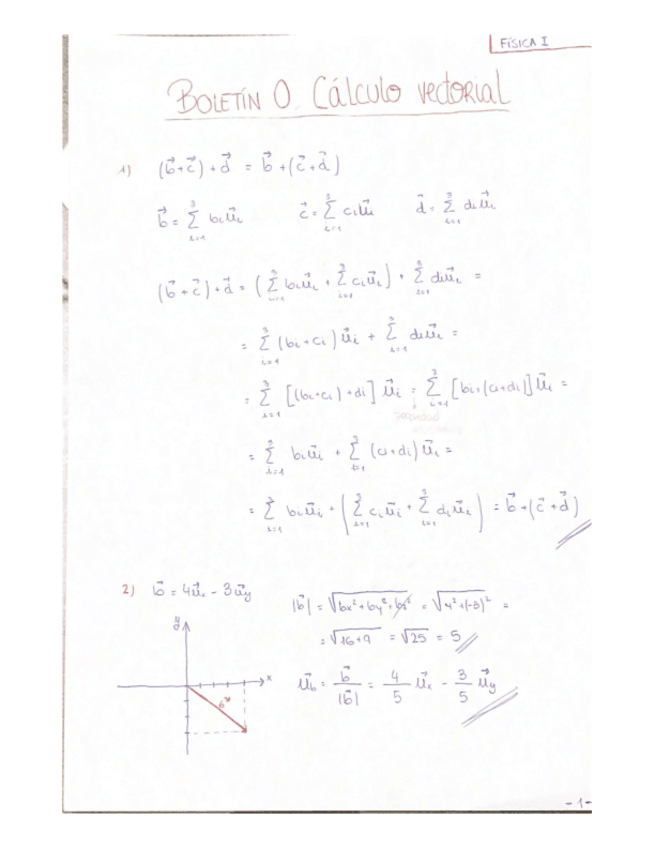 FÍSICA I
BOLETÍN 0. Cálculo vectorial
1) (b⃗+c⃗)+d⃗ = b⃗+(c⃗+d⃗)
b⃗ = ∑_{i=1}^{3} bi u⃗i   c⃗ = ∑_{i=1}^{3} ci u⃗i   d⃗ = ∑_{i=1}^{3} di u⃗i
(b⃗+c⃗)+d⃗ = (∑_{i=1}^{3} bi u⃗i + ∑_{i=1}^{3} ci u⃗i) + ∑_{i=1}^{3} di u⃗i =
= ∑_{i=1}^{3} (bi+ci) u⃗i + ∑_{i=1}^{3} di u⃗i =
= ∑_{i=1}^{3} [(bi+ci)+di] u⃗i = ∑_{i=1}^{3} [bi+(ci+di)] u⃗i =
= ∑_{i=1}^{3} bi u⃗i + ∑_{i=1}^{3} (ci+di) u⃗i =
= ∑_{i=1}^{3} bi u⃗i + (∑_{i=1}^{3} ci u⃗i + ∑_{i=1}^{3} di u⃗i) = b⃗+(c⃗+d⃗)
2) b⃗ = 4u⃗x - 3u⃗y
|b⃗| = √(bx²+by²+bz²) = √(4²+(-3)²) =
= √(16+9) = √25 = 5
u⃗b = b⃗/|b⃗| = 4/5 u⃗x - 3/5 u⃗y
y
x
b⃗
-1-